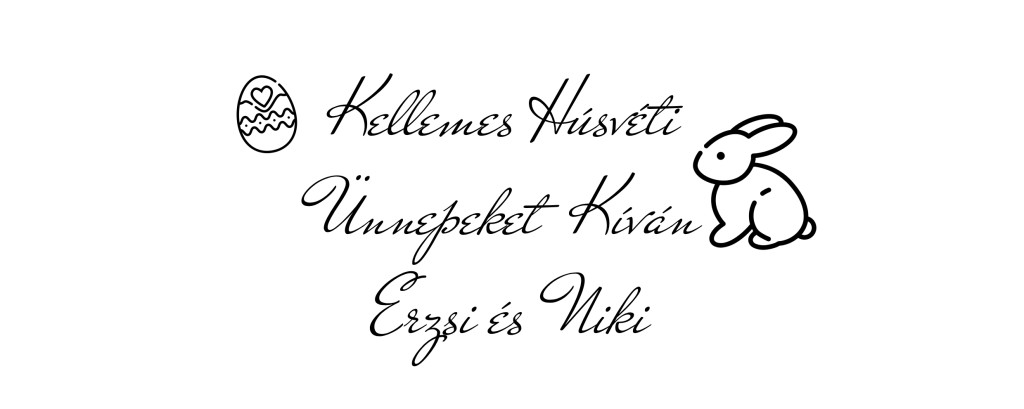 Kellemes Húsvéti
Ünnepeket Kíván
Erzsi és Niki